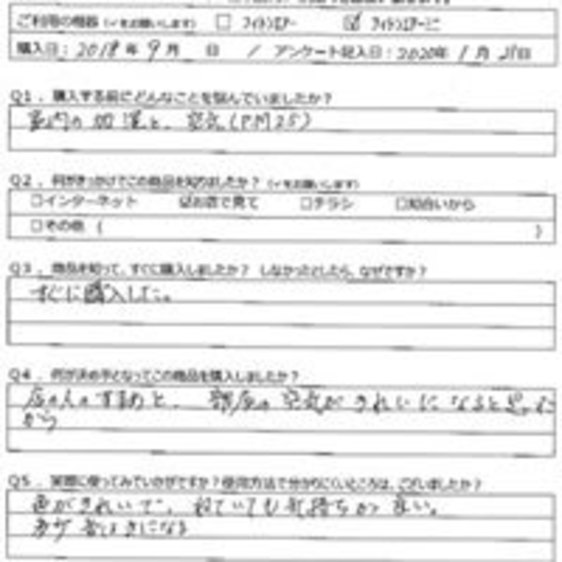 ご利用の機器（✓をお願いします） □ フィトンエアー ☑ フィトンエアーミニ
購入日：2018年9月 日 / アンケート記入日：2020年1月21日
Q1．購入する前にどんなことを悩んでいましたか？
室内の加湿と、空気(PM2.5)
Q2．何がきっかけでこの商品を知りましたか？（✓をお願いします）
□インターネット ☑お店で見て □チラシ □知合いから
□その他（ ）
Q3．商品を知って、すぐに購入しましたか？ しなかったとしたら、なぜですか？
すぐに購入した。
Q4．何が決め手となってこの商品を購入しましたか？
店の人のすすめと、部屋の空気がきれいになると思ったから
Q5．実際に使ってみていかがですか？使用方法で分かりにくいところは、ございましたか？
色がきれいで、ねていても気持ちが良い。
音はきになる